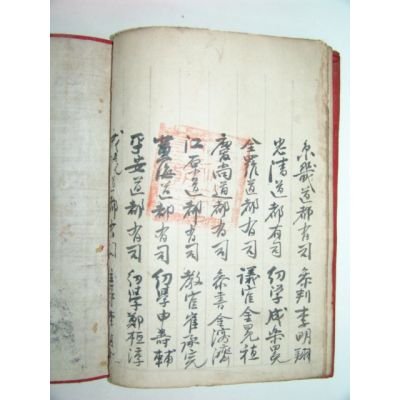 京畿道都有司 參判 李明翔
忠淸道都有司 幼學 成
全羅道都有司 議官 金冕植
慶尙道都有司 參書 金濟
江原道都有司 敎官 崔
黃海道都有司 幼學 申壽輔
平安道都有司 幼學 鄭恒淳
道都有司